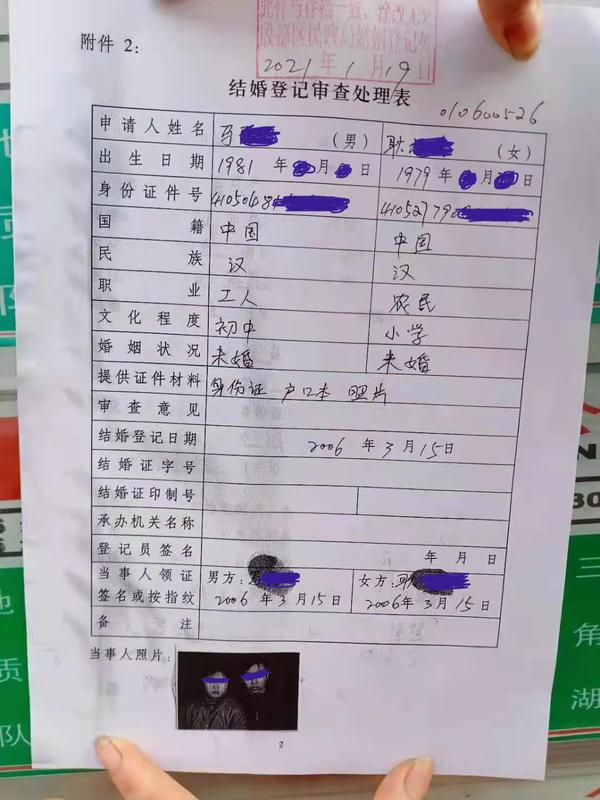 此件与存档一致,涂改无
殷都区民政局婚姻登记处
2021年1月19日
附件 2:
结婚登记审查处理表
010600526
申请人姓名 马 (男) 耿 (女)
出生日期 1981 年 月 日 1979 年 月 日
身份证件号 4105048 410527790
国籍 中国 中国
民族 汉 汉
职业 工人 农民
文化程度 初中 小学
婚姻状况 未婚 未婚
提供证件材料 身份证 户口本 照片
审查意见
结婚登记日期 2006 年 3 月 15 日
结婚证字号
结婚证印制号
承办机关名称
登记员签名 年 月 日
当事人领证 男方: 女方:耿
签名或按指纹 2006 年 3 月 15 日 2006 年 3 月 15 日
备注
当事人照片:
2